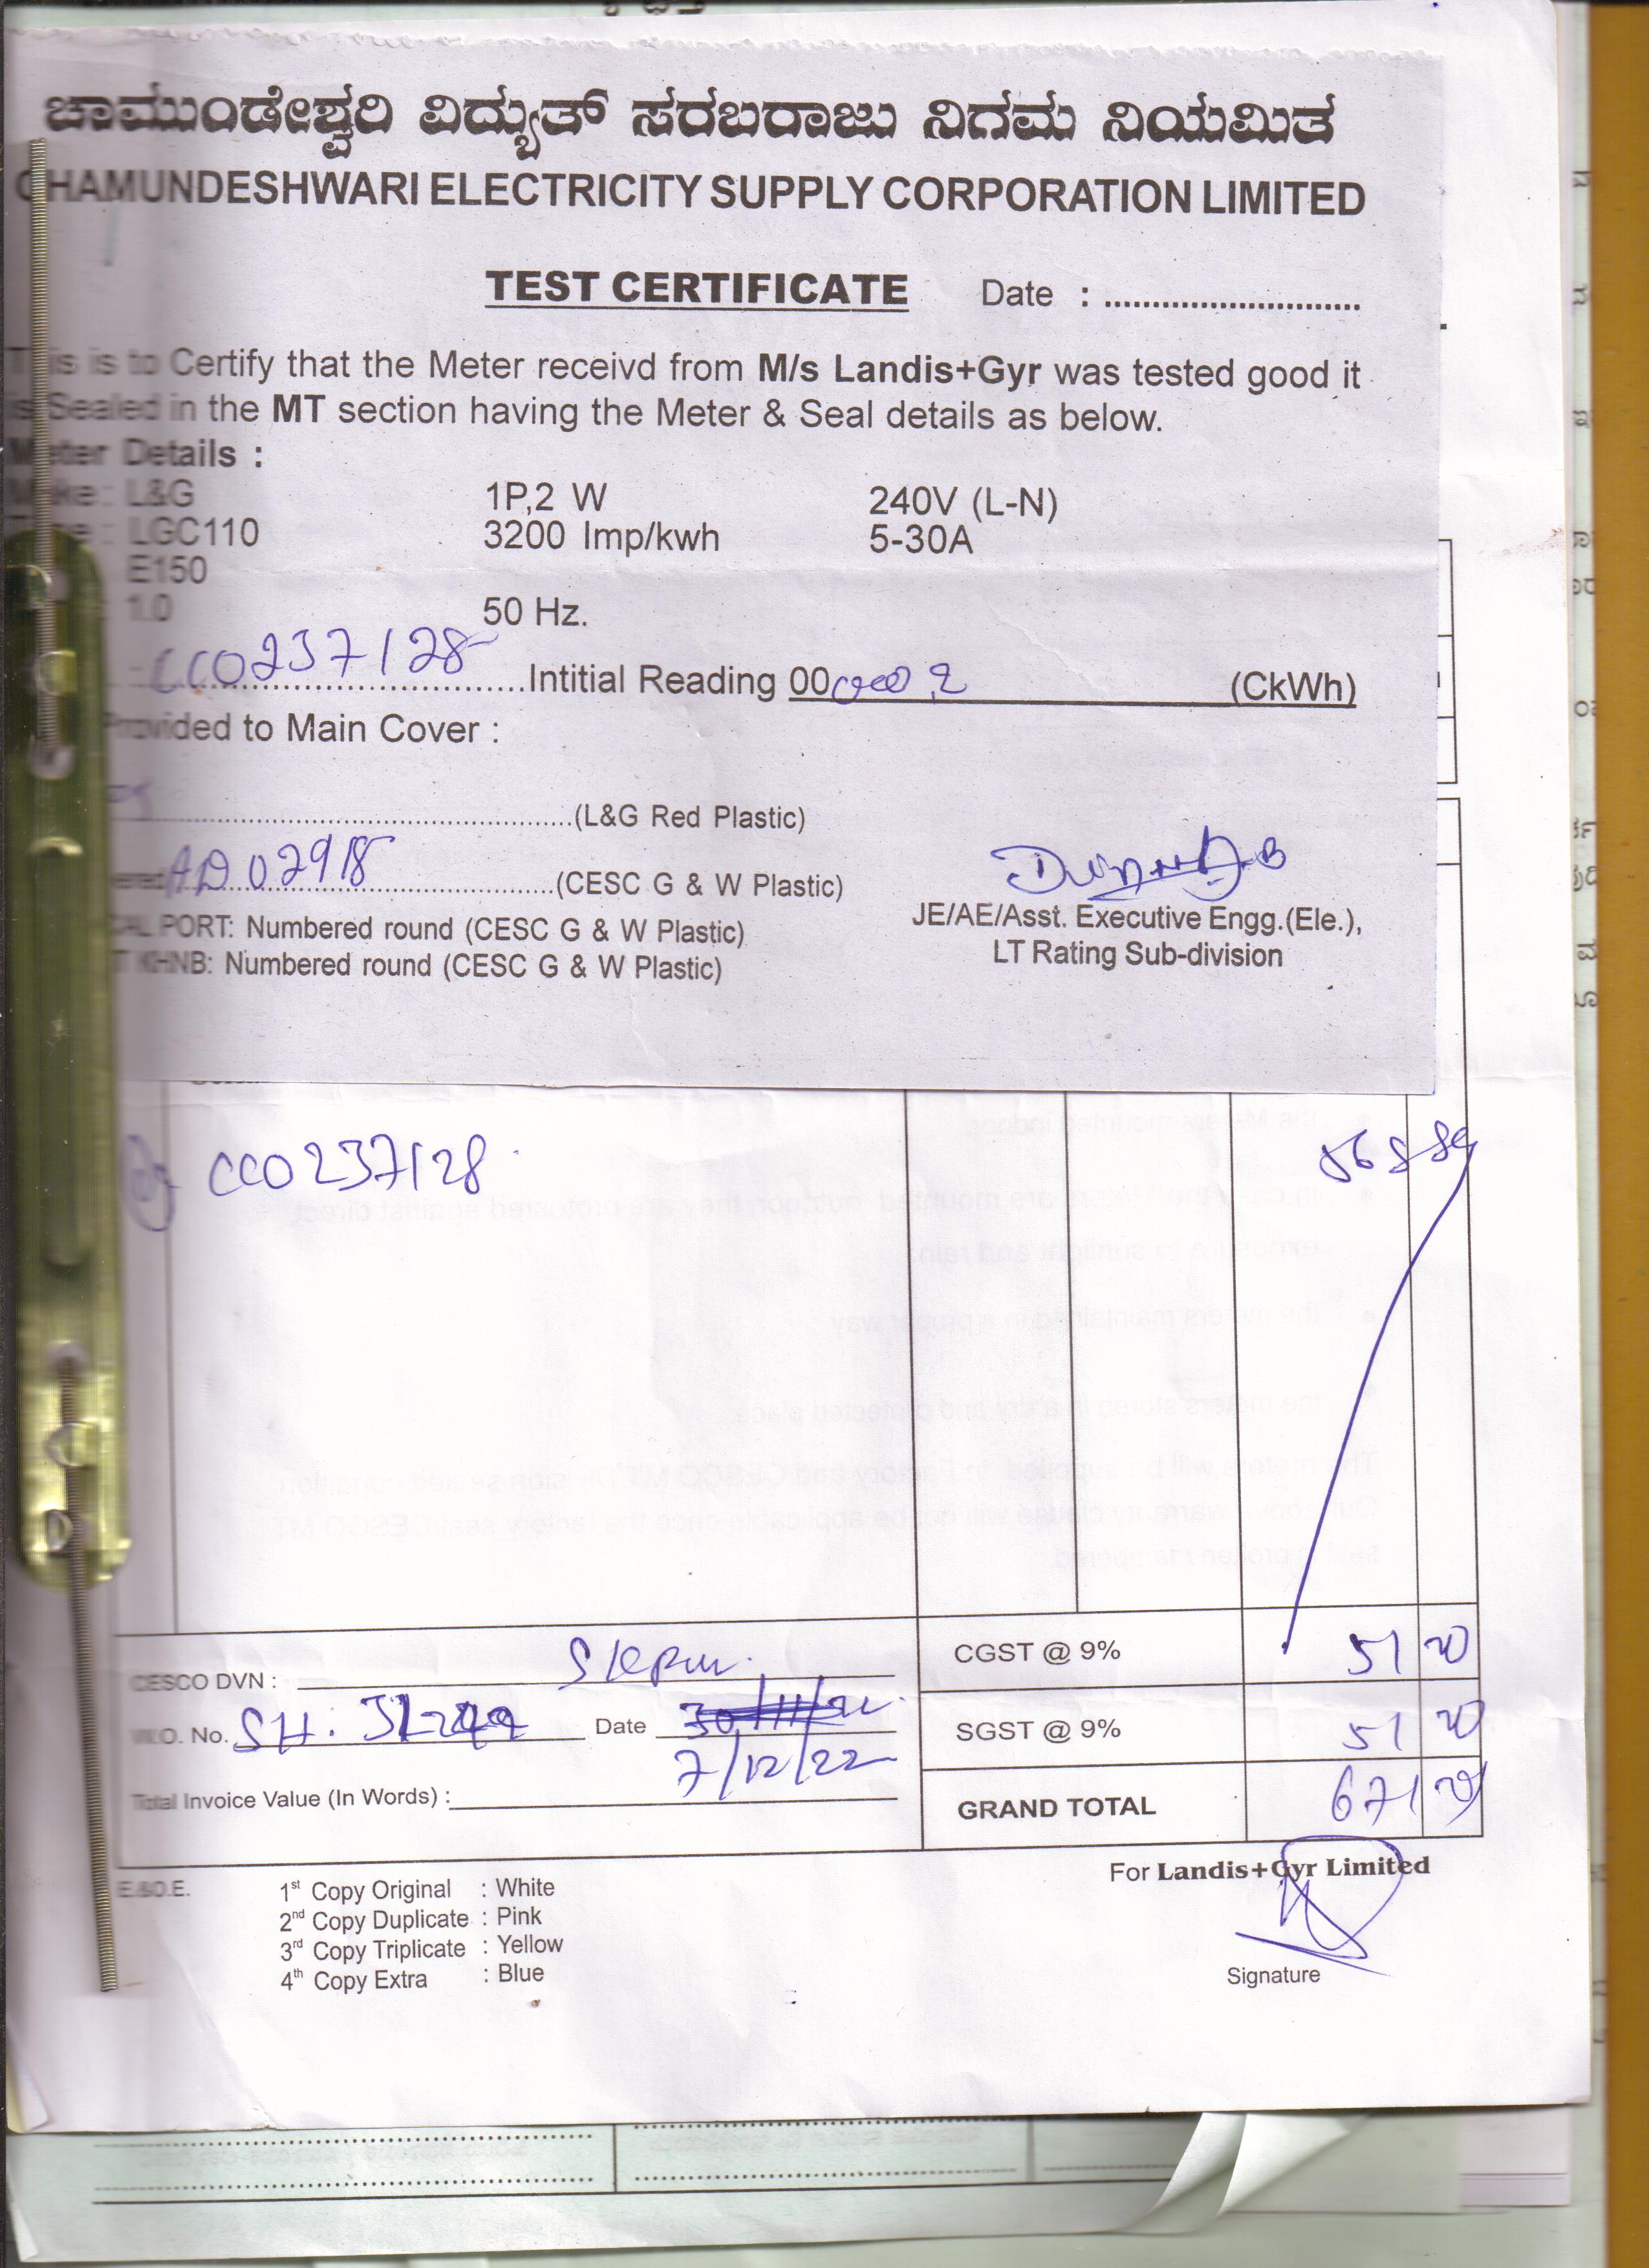 ಚಾಮುಂಡೇಶ್ವರಿ ವಿದ್ಯುತ್ ಸರಬರಾಜು ನಿಗಮ ನಿಯಮಿತ
CHAMUNDESHWARI ELECTRICITY SUPPLY CORPORATION LIMITED
TEST CERTIFICATE Date : ...........................
This is to Certify that the Meter receivd from M/s Landis+Gyr was tested good it
is Sealed in the MT section having the Meter & Seal details as below.
Meter Details :
Make : L&G 1P,2 W 240V (L-N)
: LGC110 3200 Imp/kwh 5-30A
E150
: 1.0 50 Hz.
CC0237128 Intitial Reading 00000.2 (CkWh)
Provided to Main Cover :
(L&G Red Plastic)
AD02918 (CESC G & W Plastic)
PORT: Numbered round (CESC G & W Plastic)
KHNB: Numbered round (CESC G & W Plastic)
JE/AE/Asst. Executive Engg.(Ele.),
LT Rating Sub-division
CC0237128
CESCO DVN : CGST @ 9% 51 20
W.O. No. SH. Date 30/11/22 SGST @ 9% 51 20
7/12/22
Total Invoice Value (In Words) : GRAND TOTAL 671 20
E.&O.E.
1st Copy Original : White
2nd Copy Duplicate : Pink
3rd Copy Triplicate : Yellow
4th Copy Extra : Blue
For Landis+Gyr Limited
Signature